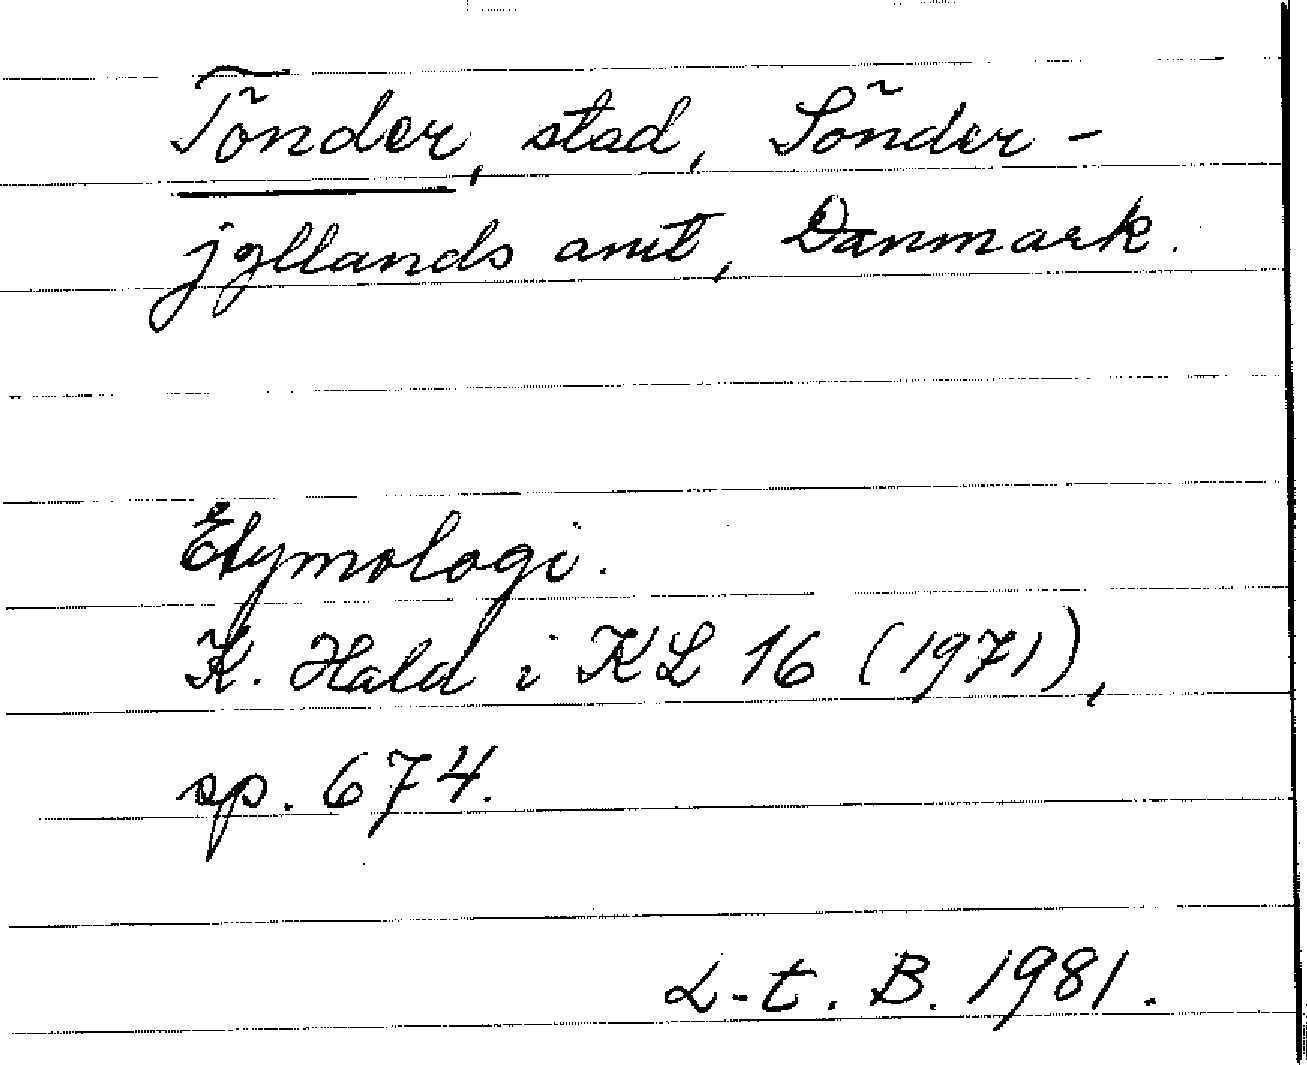 Tönder, stad, Sönder-
jyllands amt, Danmark.
Etymologi.
K. Hald i KL 16 (1971),
sp. 674.
L-t. B. 1981.